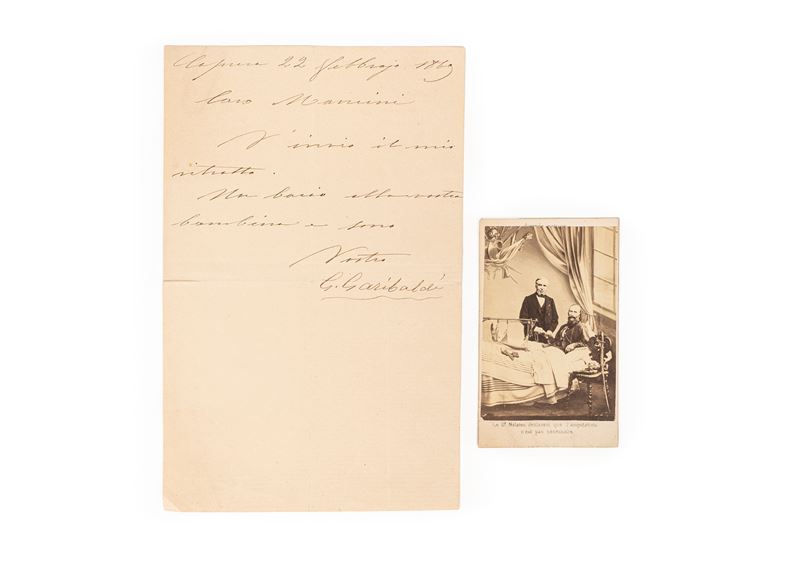 Caprera 22 febbrajo 1869
Caro Mancini
V'invio il mio
ritratto.
Un bacio alla vostra
bambina e sono
Vostro
G. Garibaldi
Le Dr Nélaton déclarant que l'amputation
n'est pas nécessaire.